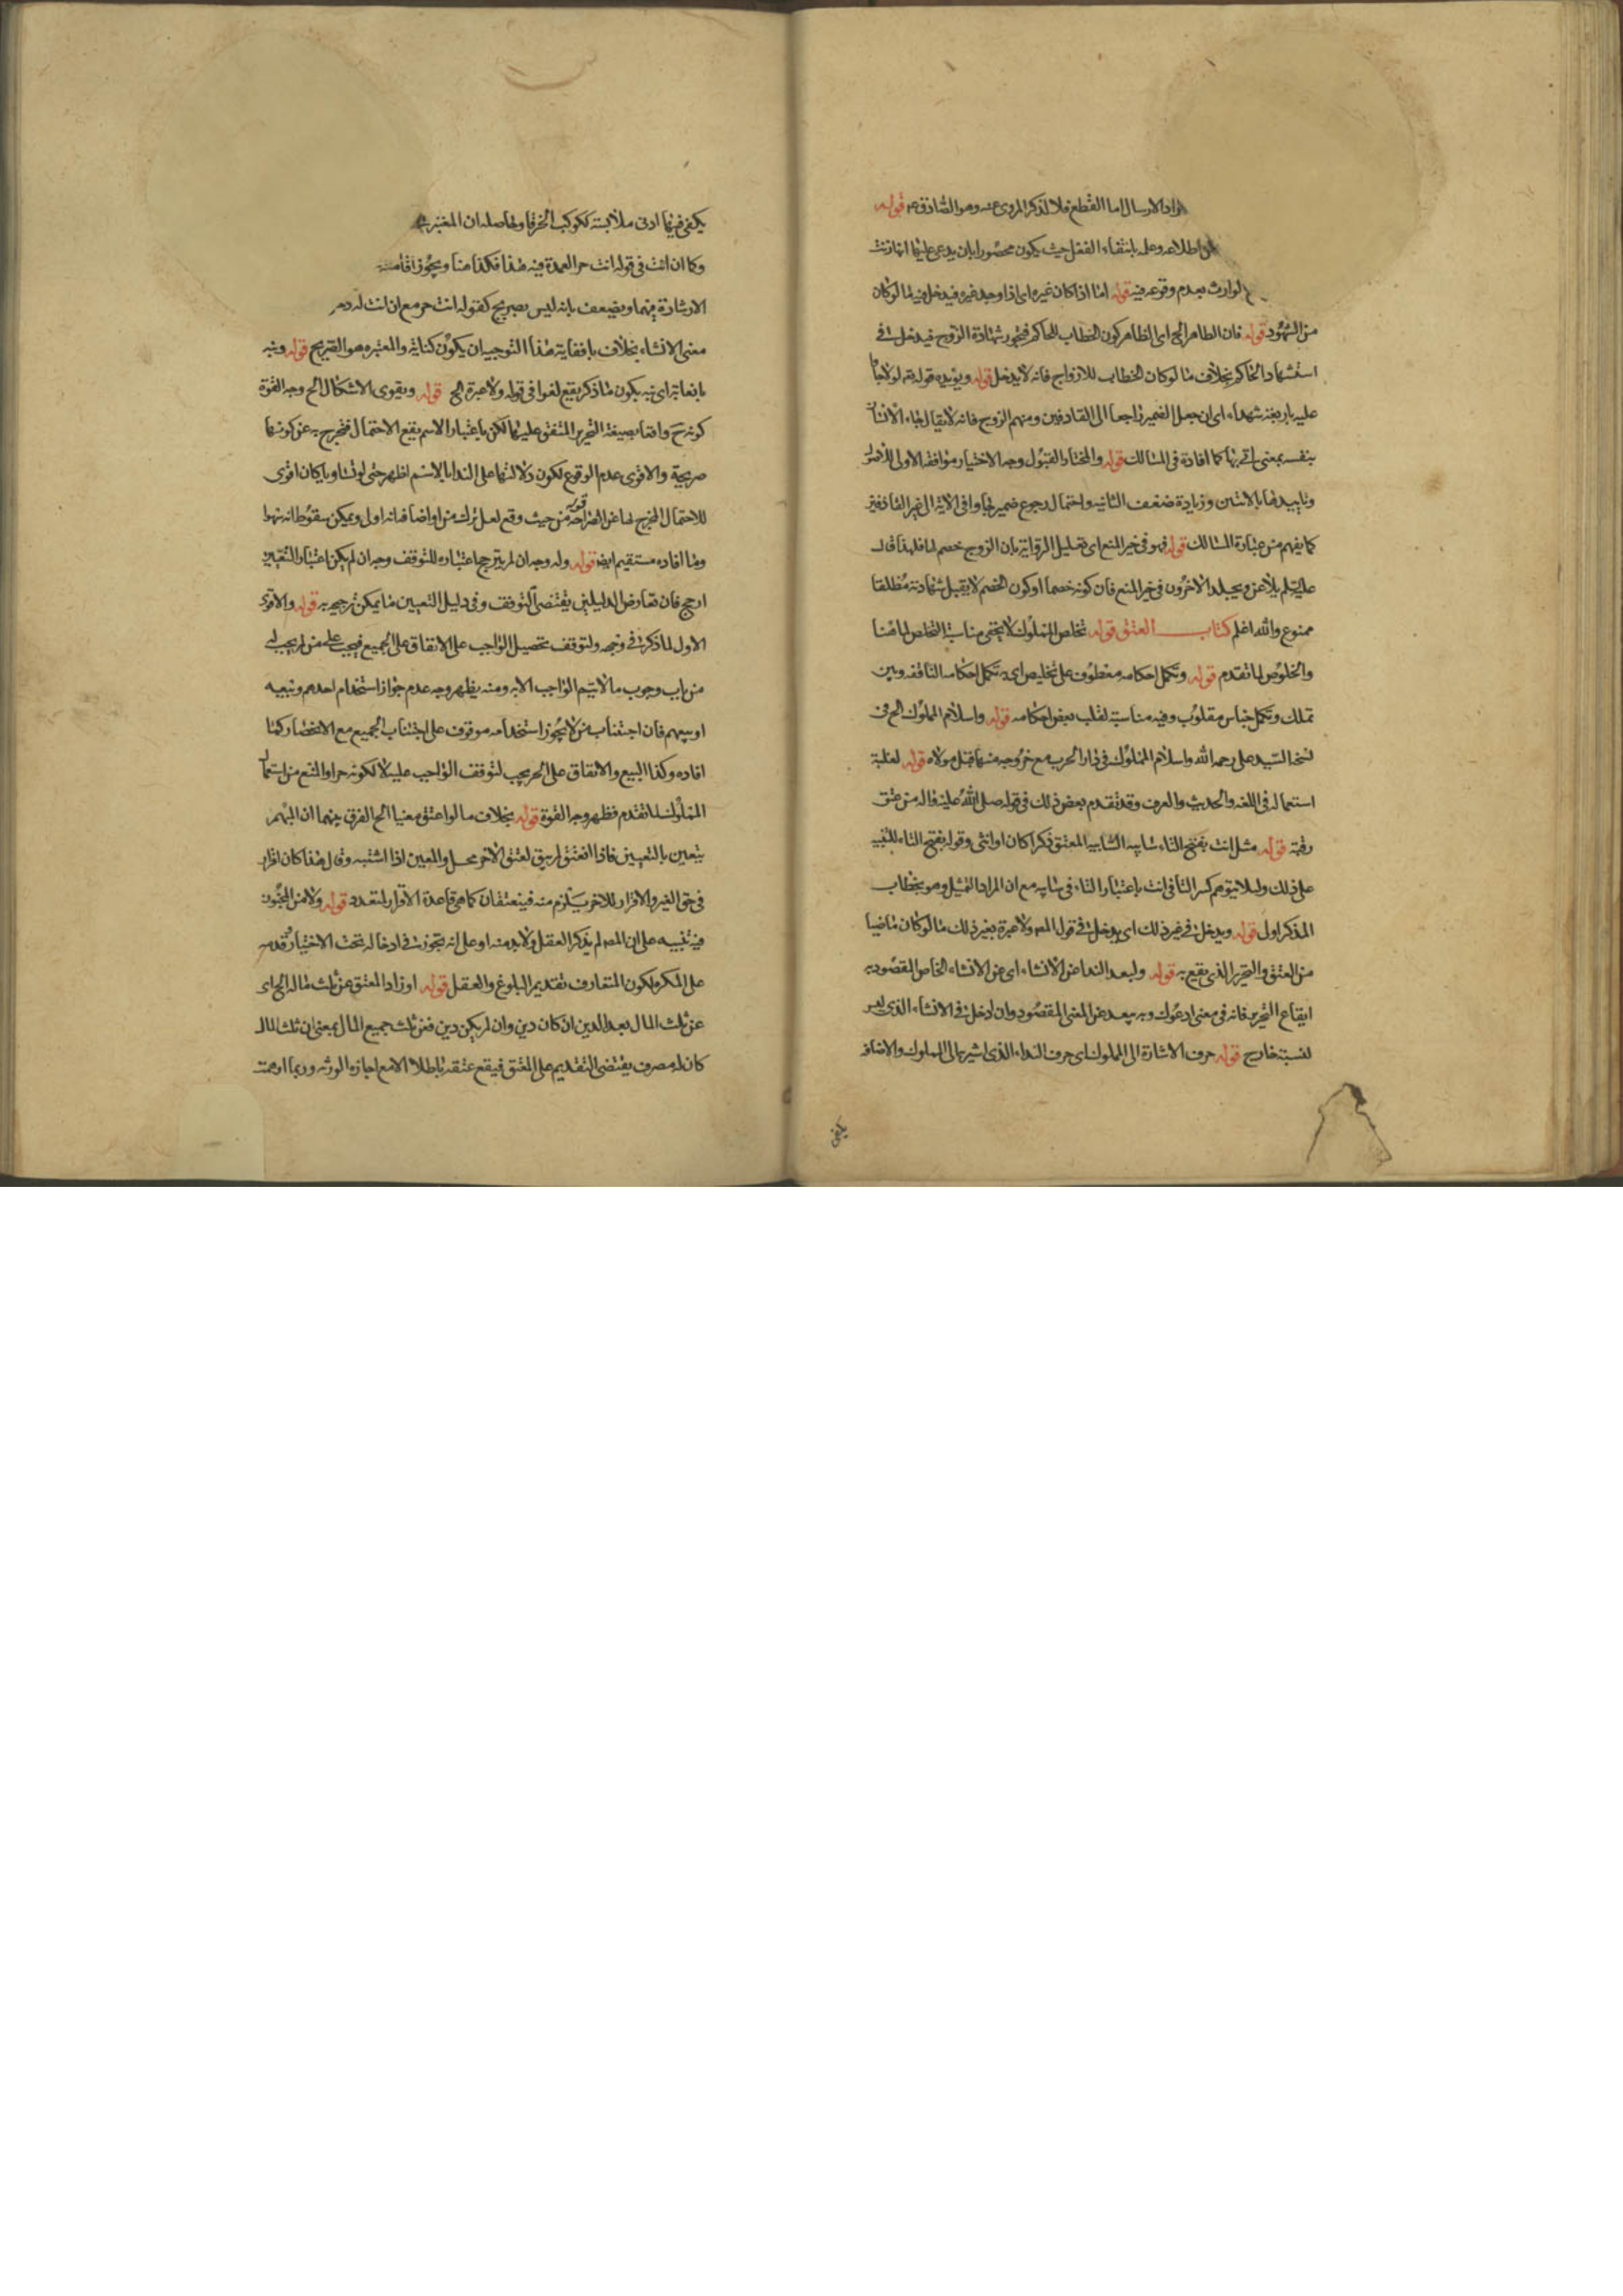 اراد الارسال اما القطع فلا لذكر المروى عنه وهو الصادق ع قوله
اطلاعه وعلمه بانتفاء الفعل حيث يكون محصورا بان يدعى عليها انها زنت
الوارث بعدم وقوعه فيه قوله اما اذا كان غيره اى اذا وجد غيره فيدخل فيه ما لو كان
من الشهود قوله فان الظاهر الخ اى الظاهر كون الخطاب للحاكم فتجوز شهادة الزوج فيدخل فى
استشهاد الحاكم بخلاف ما لو كان الخطاب للازواج فانه لا يدخل قوله ويؤيده قوله تع لولا جاؤا
عليه باربعة شهداء اى ان جعل الضمير راجعا الى القاذفين ومنهم الزوج فانه لا يقال جاء الانسان
بنفسه بمعنى اتى بها كما افاده فى المسالك قوله والمختار القبول وجه الاختيار موافقة الاولى للاصول
وتاييدها بالاثنين وزيادة ضعف الثانيه واحتمال رجوع ضمير جاؤا فى الآية الى غير القاذفين
كما يفهم من عبارة المسالك قوله فهو فى خبر المنع اى تعليل الرواية بان الزوج خصم لها فلهذا قال
عليه السلم يلاعن ويجلد الآخرون فى خبر المنع فان كونه خصما او كون الخصم لا يقبل شهادته مطلقا
ممنوع والله اعلم كتاب العتق قوله تخلص المملوك لا يخفى مناسبة التخلص لما هنا
والخلوص لما تقدم قوله وتكمل احكامه معطوف على تخليص اى وتكمل احكامه الناقصه وبين
تملك وتكمل جناس مقلوب وفيه مناسبة لقلب بعض احكامه قوله واسلام المملوك الخ فى
نسخة السيد على رحمه الله واسلام المملوك فى دار الحرب مع خروجه منها قبل مولاه قوله لغلبة
استعماله فى اللغه والحديث والعرف وقد تقدم بعض ذلك فى قوله صلى الله عليه واله من عتق
رقبة قوله مثل انت بفتح التاء المعتق ذكرا كان او انثى وقوله بفتح التاء للتنبيه
على ذلك ولئلا يتوهم كسر التا فى انت باعتبار التاء فى مع ان المراد التمثيل وهو بخطاب
المذكر اولى قوله ويدخل فى غير ذلك اى يدخل فى قول المص ولا عبرة بغير ذلك ما لو كان ماضيا
من العتق والتحرير الذى يقع به قوله ولبعد الندا عن الانشاء اى عن الانشاء الخاص المقصود به
ايقاع التحرير فانه فى معنى ادعوك وبه يبعد عن المعنى المقصود وان ادخل فى الانشاء الذى ليس
لنسبته خارج قوله حرف الاشارة الى المملوك اى حرف النداء الذى اشير به الى المملوك والاضافة
يكفى
يكفى فيها ادنى ملابسة ككوكب الخرقاء وحاصله ان المعتبر
وكما ان انت فى قوله انت حر العمدة فيه هذا فكذا هنا ويجوز اقامة
الاشارة فيهما ويضعف بانه ليس بصريح كقوله انت حر مع ان انت له
معنى الانشاء بخلاف يا فغاية هذا التوجيه ان يكون كناية والمعتبر هو الصريح قوله ونبه
بالغاية اى به يكون ما ذكر يقع لغوا فى قوله ولا عبرة الخ قوله ويقوى الاشكال الخ وجه القوة
كونه ح واقعا بصيغة التحرير المتفق عليها لكن باعتبار الاسم يقع الاحتمال فتخرج به عن كونها
صريحة والاقوى عدم الوقوع لكون دلالتها على الندا بالاسم اظهر حتى لو تساويا كان اقوى
للاحتمال المخرج لها عن الصراحة قوله من حيث وقع لعل ترك من او اضافة انه اولى ويمكن سقوطه سهوا
وما افاده مستقيم ايض قوله وله وجه ان لم يترجح اعتباره للتوقف وجه ان لم يكن اعتبار التعيين
ارجح فان تعارض الدليلين يقتضى التوقف وفى دليل التعيين ما يمكن ترجيحه قوله والاقوى
الاول لما ذكر فى وجهه ولتوقف تحصيل الواجب على الانفاق على الجميع فيجب على من لم يجب له
من باب وجوب ما لا يتم الواجب الا به ومنه يظهر وجه عدم جواز استخدام احدهم وبيعه
او بيعهم فان اجتناب من لا يجوز استخدامه موقوف على اجتناب الجميع مع الانحصار كما
افاده وكذا البيع والانفاق على الحر يجب لتوقف الواجب عليه لا لكونه حرا والمنع من استعمال
المملوك لما تقدم فظهر وجه القوة قوله بخلاف ما لو اعتق معينا الخ الفرق بينهما ان المبهم
يتعين بالتعيين فاذا انعتق لم يبق لعتق الآخر محل والمعين اذا اشتبه وقال هذا كان اقرار
فى حق الغير والاقرار للاخر يستلزم منه فينعتقان كما هى قاعدة الاقرار لمتعدد قوله ولا من المجنون
فيه تنبيه على ان المص لم يذكر العقل ولا بد منه او على انه تجوز فى ادخاله تحت الاختيار وقدمه
على المكره لكون المتعارف تقديم البلوغ والعقل قوله او زاد المعتق عن ثلث ماله الخ اى
عن ثلث المال بعد الدين ان كان دين وان لم يكن دين فمن ثلث جميع المال بمعنى ان ثلث المال
كان له مصرف يقتضى التقديم على العتق فيقع عتقه باطلا الا مع اجازة الورثه وربما اوهمت